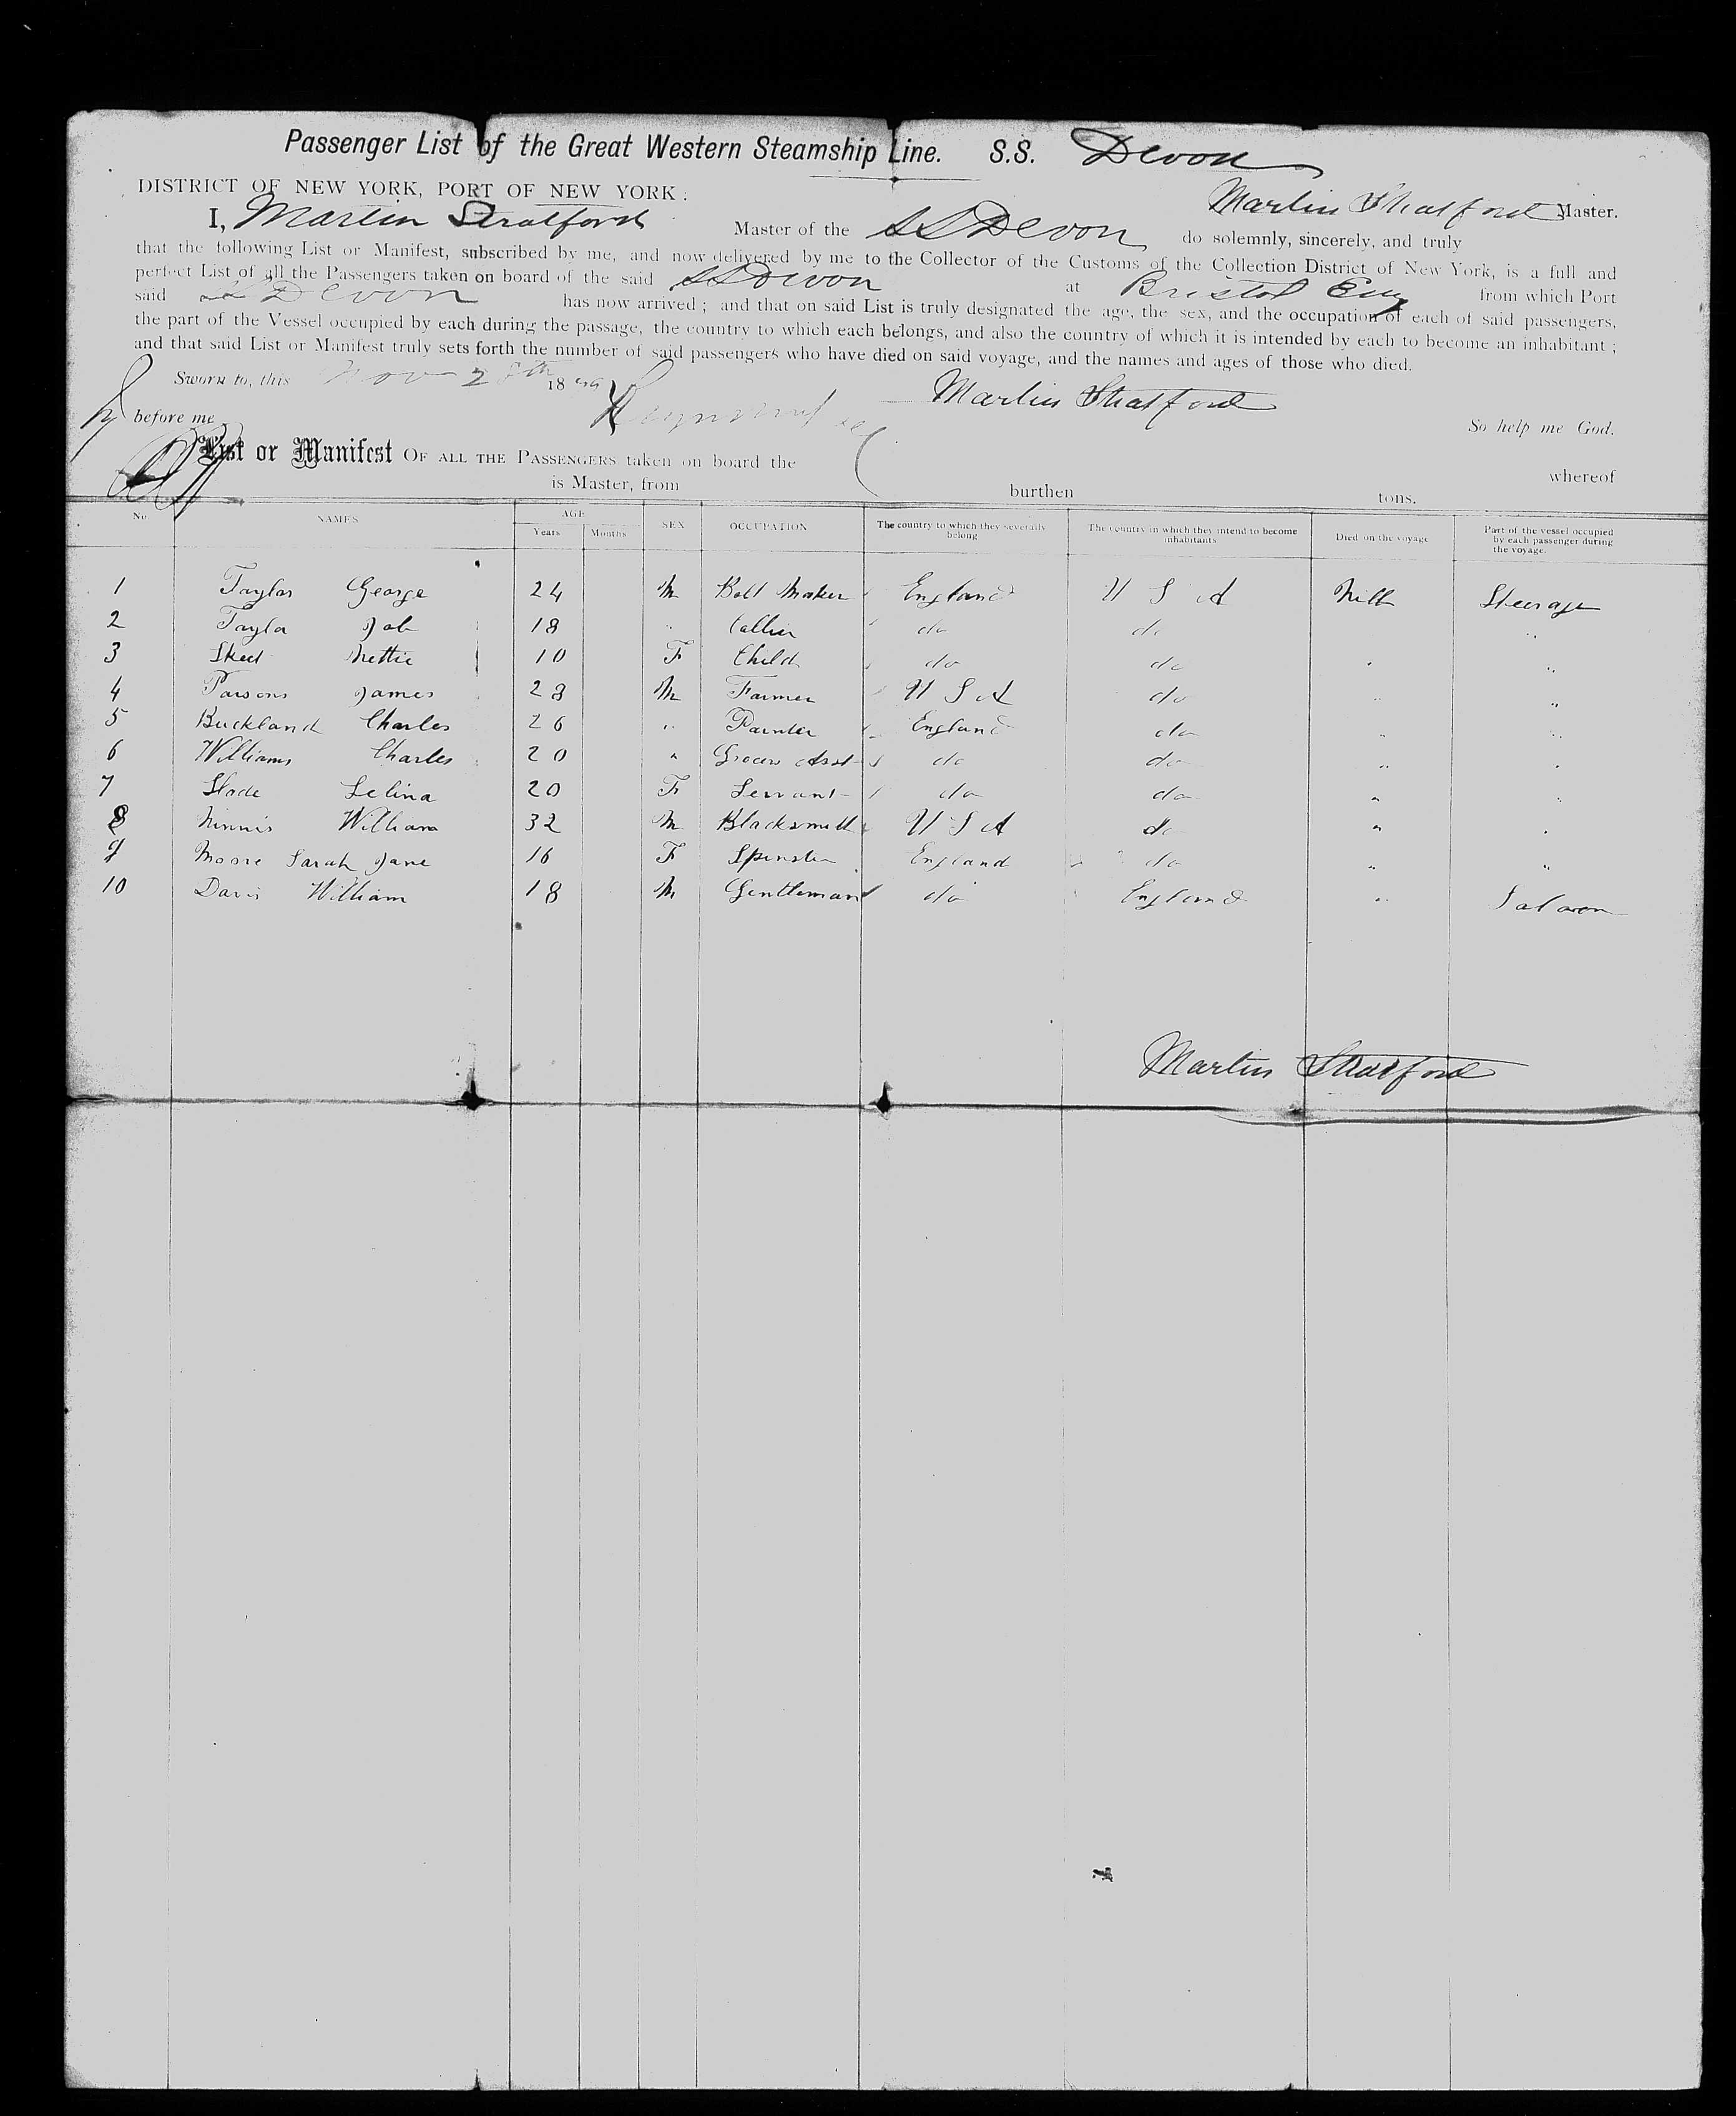 Passenger List of the Great Western Steamship Line. S.S. Devon
DISTRICT OF NEW YORK, PORT OF NEW YORK:
Martin Stratford Master.
I, Martin Stratford Master of the SS Devon do solemnly, sincerely, and truly
that the following List or Manifest, subscribed by me, and now delivered by me to the Collector of the Customs of the Collection District of New York, is a full and
perfect List of all the Passengers taken on board of the said SS Devon at Bristol Eng from which Port
said SS Devon has now arrived; and that on said List is truly designated the age, the sex, and the occupation of each of said passengers,
the part of the Vessel occupied by each during the passage, the country to which each belongs, and also the country of which it is intended by each to become an inhabitant;
and that said List or Manifest truly sets forth the number of said passengers who have died on said voyage, and the names and ages of those who died.
Sworn to, this Nov 28th 18 Martin Stratford
before me So help me God.
List or Manifest OF ALL THE PASSENGERS taken on board the whereof
is Master, from burthen tons.
No. NAMES AGE Years Months SEX OCCUPATION The country to which they severally belong The country in which they intend to become inhabitants Died on the voyage Part of the vessel occupied by each passenger during the voyage.
1 Taylor George 24 M Bolt Maker England U S A Nill Steerage
2 Taylor Job 18 " Collier do do "
3 Skeet Nettie 10 F Child do do " "
4 Parsons James 28 M Farmer U S A do " "
5 Buckland Charles 26 " Painter England do " "
6 Williams Charles 20 " Grocers Asst do do " "
7 Slade Selina 20 F Servant do do " "
8 Ninnis William 32 M Blacksmith U S A do " "
9 Moore Sarah Jane 16 F Spinster England do " "
10 Davis William 18 M Gentleman do England " Saloon
Martin Stratford